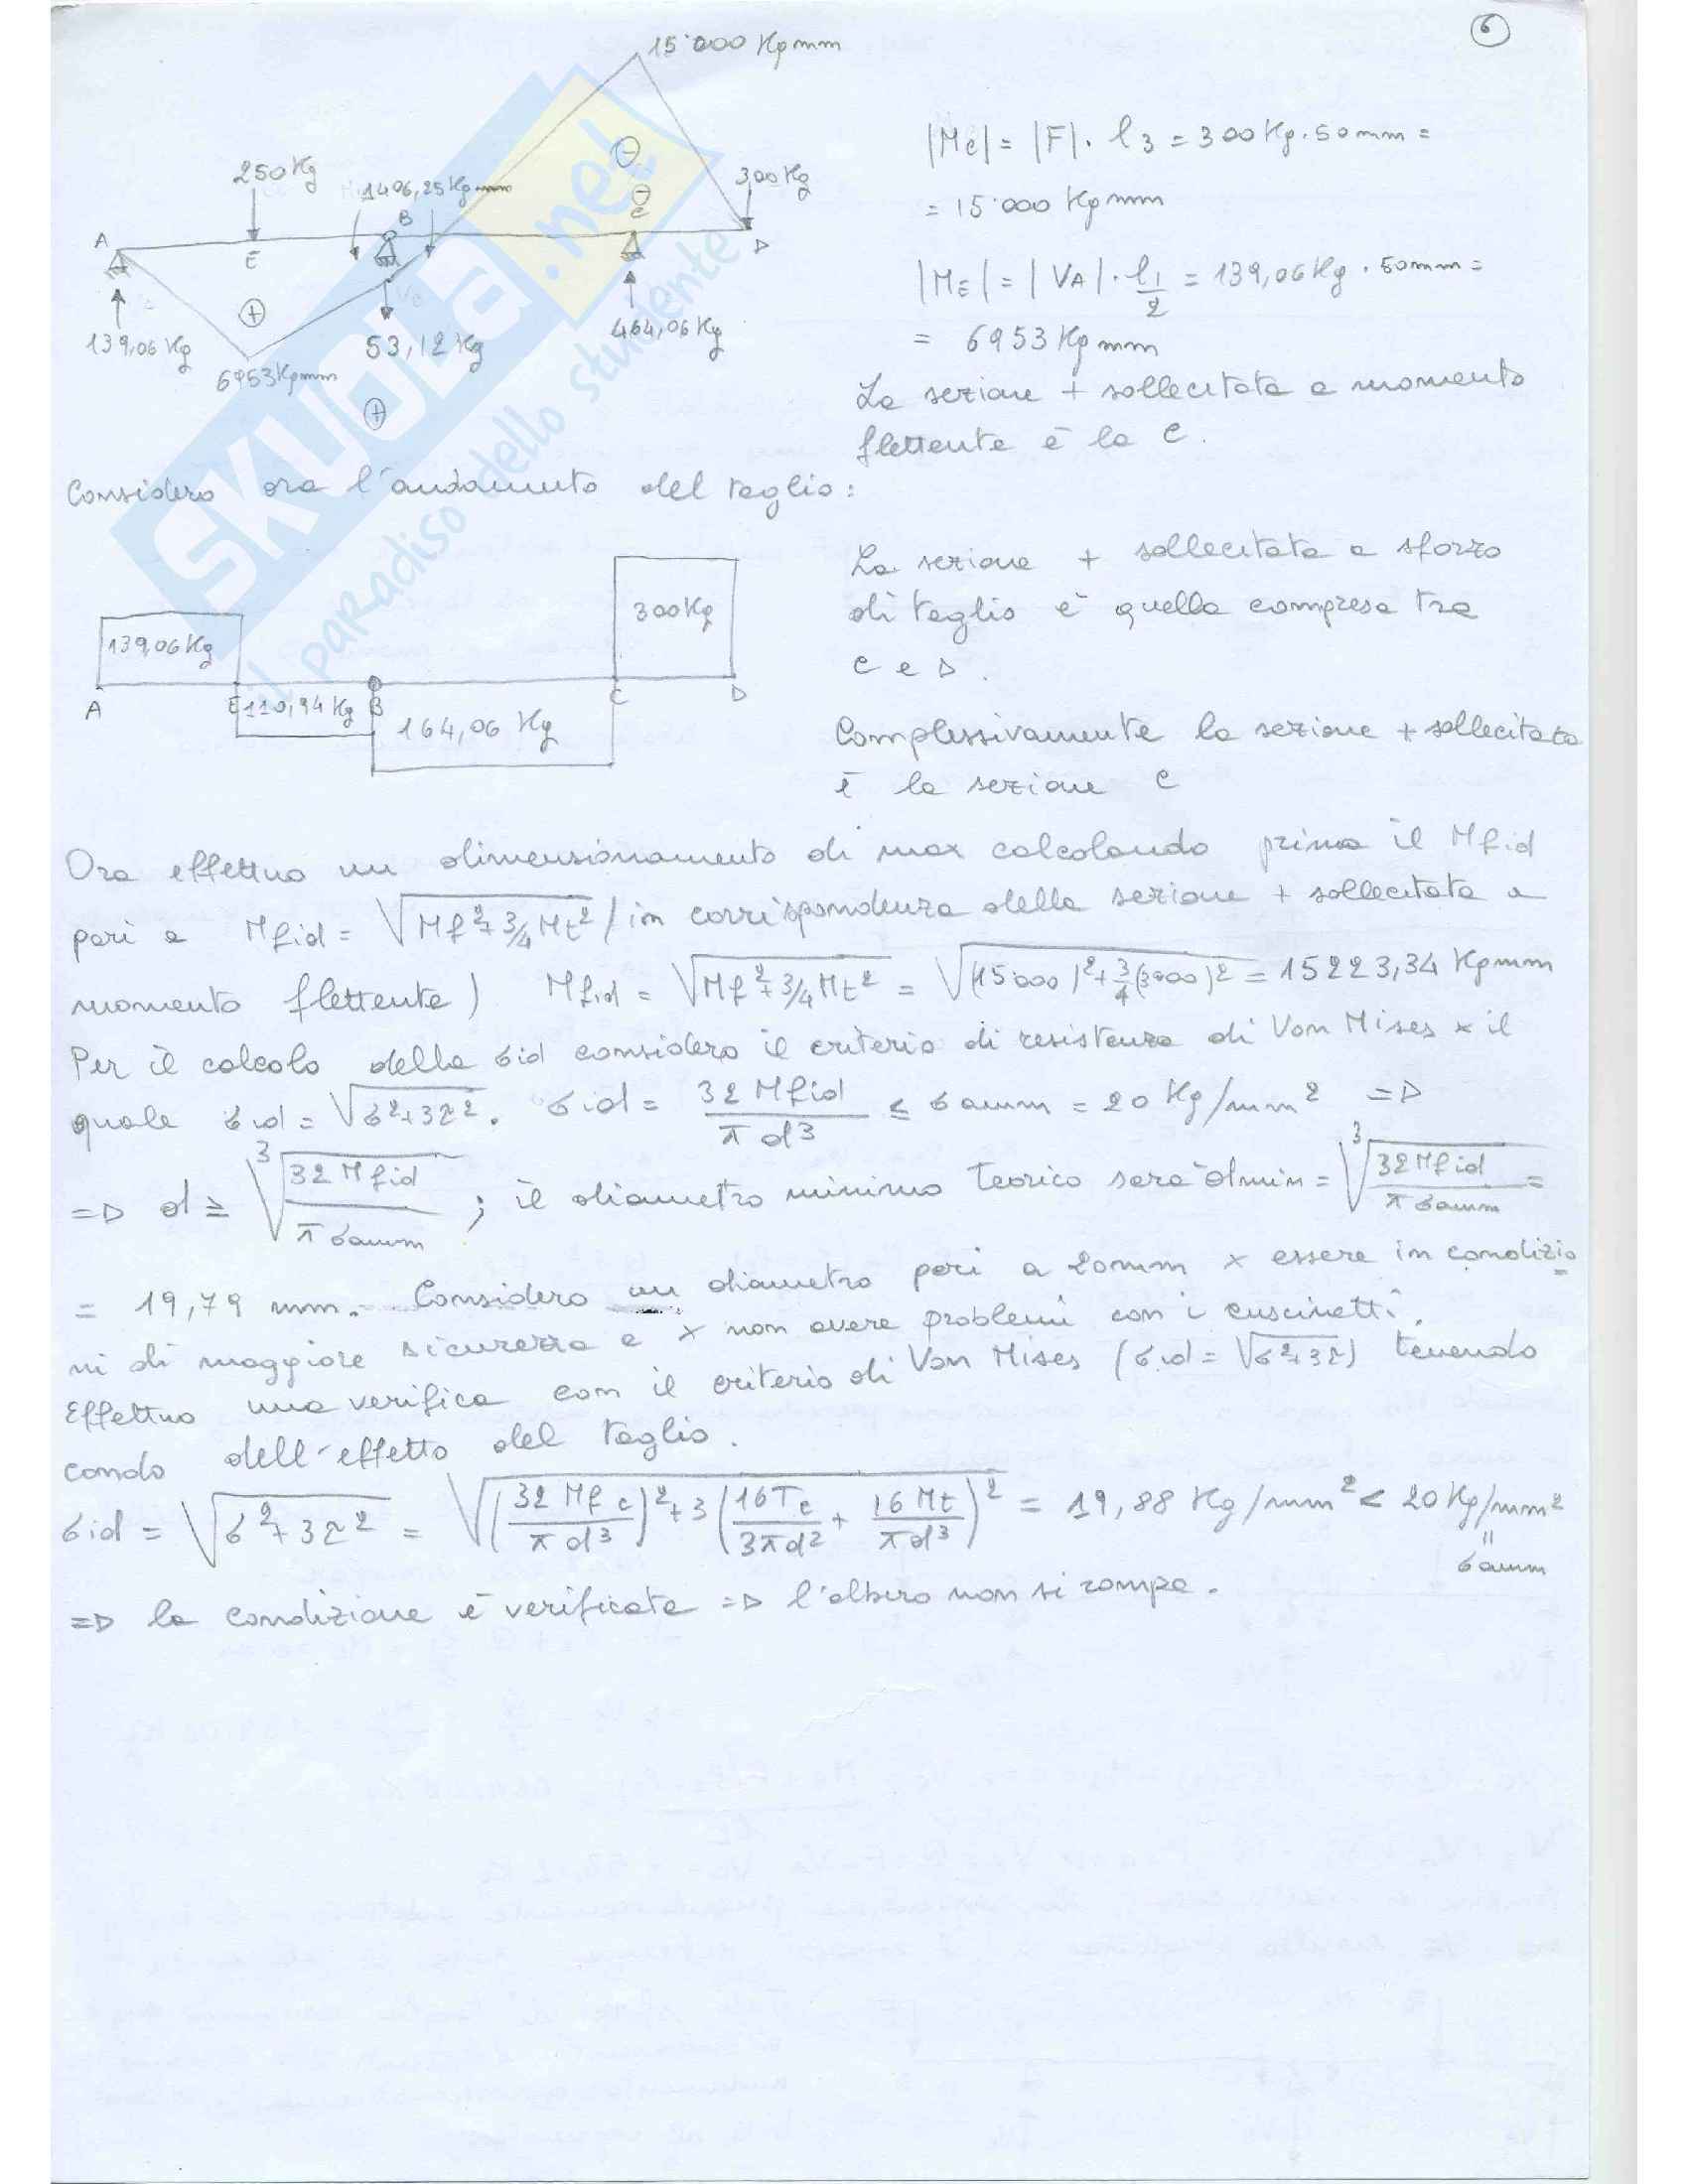 6
15'000 Kgmm
250 Kg
1406,25 Kgmm
300 Kg
A
E
B
C
D
139,06 Kg
6953 Kgmm
53,12 Kg
464,06 Kg
|Mc| = |F| · l3 = 300 Kg · 50 mm =
= 15'000 Kgmm
|ME| = |VA| · l1/2 = 139,06 Kg · 50mm =
= 6953 Kgmm
La sezione + sollecitata a momento
flettente è la C.
Considero ora l'andamento del taglio:
139,06 Kg
110,94 Kg
164,06 Kg
300 Kg
A
E
B
C
D
La sezione + sollecitata a sforzo
di taglio è quella compresa tra
C e D.
Complessivamente la sezione + sollecitata
è la sezione C
Ora effettuo un dimensionamento di max calcolando prima il Mfid
pari a Mfid = √(Mf² + 3/4 Mt²) (in corrispondenza della sezione + sollecitata a
momento flettente) Mfid = √(Mf² + 3/4 Mt²) = √((15000)² + 3/4 (3000)²) = 15223,34 Kgmm
Per il calcolo della σid considero il criterio di resistenza di Von Mises x il
quale σid = √(σ² + 3τ²). σid = 32 Mfid / π d³ ≤ σamm = 20 Kg/mm² =>
=> d ≥ ³√(32 Mfid / π σamm) ; il diametro minimo teorico sarà dmin = ³√(32 Mfid / π σamm) =
= 19,79 mm. Considero un diametro pari a 20mm x essere in condizio
ni di maggiore sicurezza e x non avere problemi con i cuscinetti.
Effettuo una verifica con il criterio di Von Mises (σid = √(σ² + 3τ)) tenendo
condo dell'effetto del taglio.
σid = √(σ² + 3τ²) = √((32 Mfc / π d³)² + 3 (16 Tc / 3π d² + 16 Mt / π d³)²) = 19,88 Kg/mm² < 20 Kg/mm²
"
σamm
=> la condizione è verificata => l'albero non si rompe.
SKUOLA.net
il paradiso dello studente